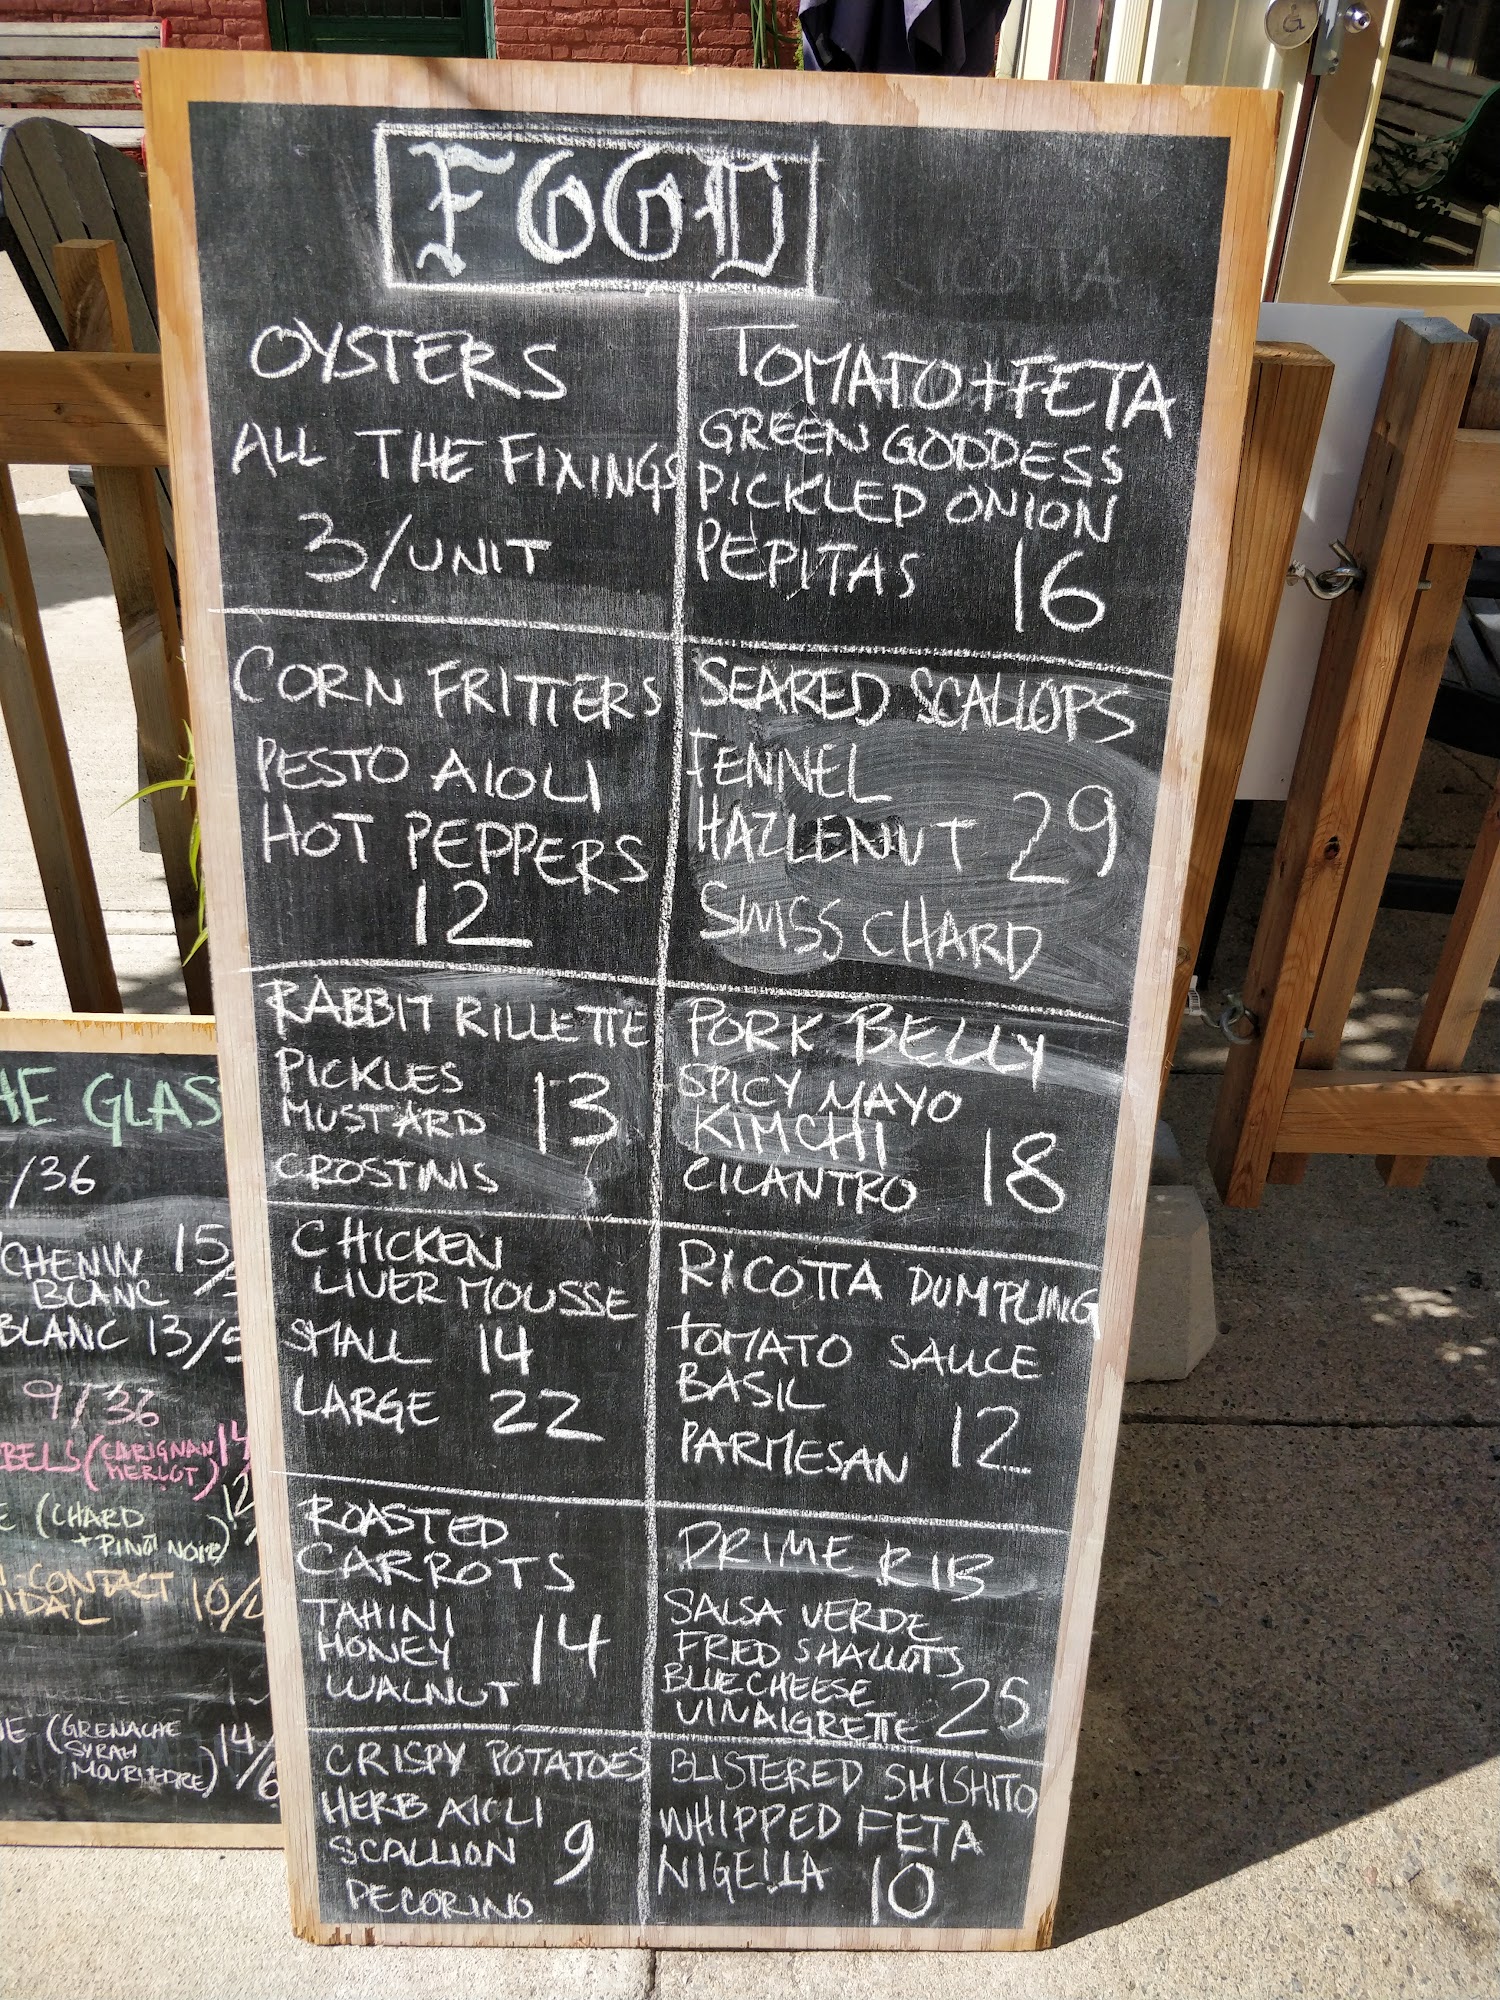 FOOD
OYSTERS
ALL THE FIXINGS
3/UNIT
CORN FRITTERS
PESTO AIOLI
HOT PEPPERS
12
RABBIT RILLETTE
PICKLES
MUSTARD 13
CROSTINIS
CHICKEN
LIVER MOUSSE
SMALL 14
LARGE 22
ROASTED
CARROTS
TAHINI
HONEY 14
WALNUT
CRISPY POTATOES
HERB AIOLI
SCALLION 9
PECORINO
TOMATO + FETA
GREEN GODDESS
PICKLED ONION
PEPITAS 16
SEARED SCALLOPS
FENNEL
HAZLENUT 29
SWISS CHARD
PORK BELLY
SPICY MAYO
KIMCHI
CILANTRO 18
RICOTTA DUMPLING
TOMATO SAUCE
BASIL
PARMESAN 12
PRIME RIB
SALSA VERDE
FRIED SHALLOTS
BLUE CHEESE
VINAIGRETTE 25
BLISTERED SHISHITO
WHIPPED FETA
NIGELLA 10
HE GLAS
/36
CHENIN 15/
BLANC
BLANC 13/5
9/36
BELS (CARIGNAN 14
MERLOT)
E (CHARD 12
+ PINOT NOIR)
CONTACT
IDAL 10/
E (GRENACHE 14/6
SYRAH
MOURVEDRE)